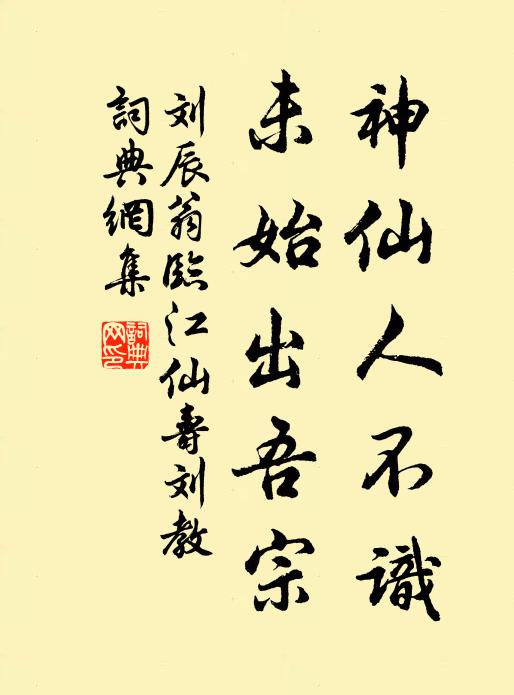 神仙人不識
未始出吾宗
刘辰翁臨江仙壽刘教
詞典網集
詞典网印